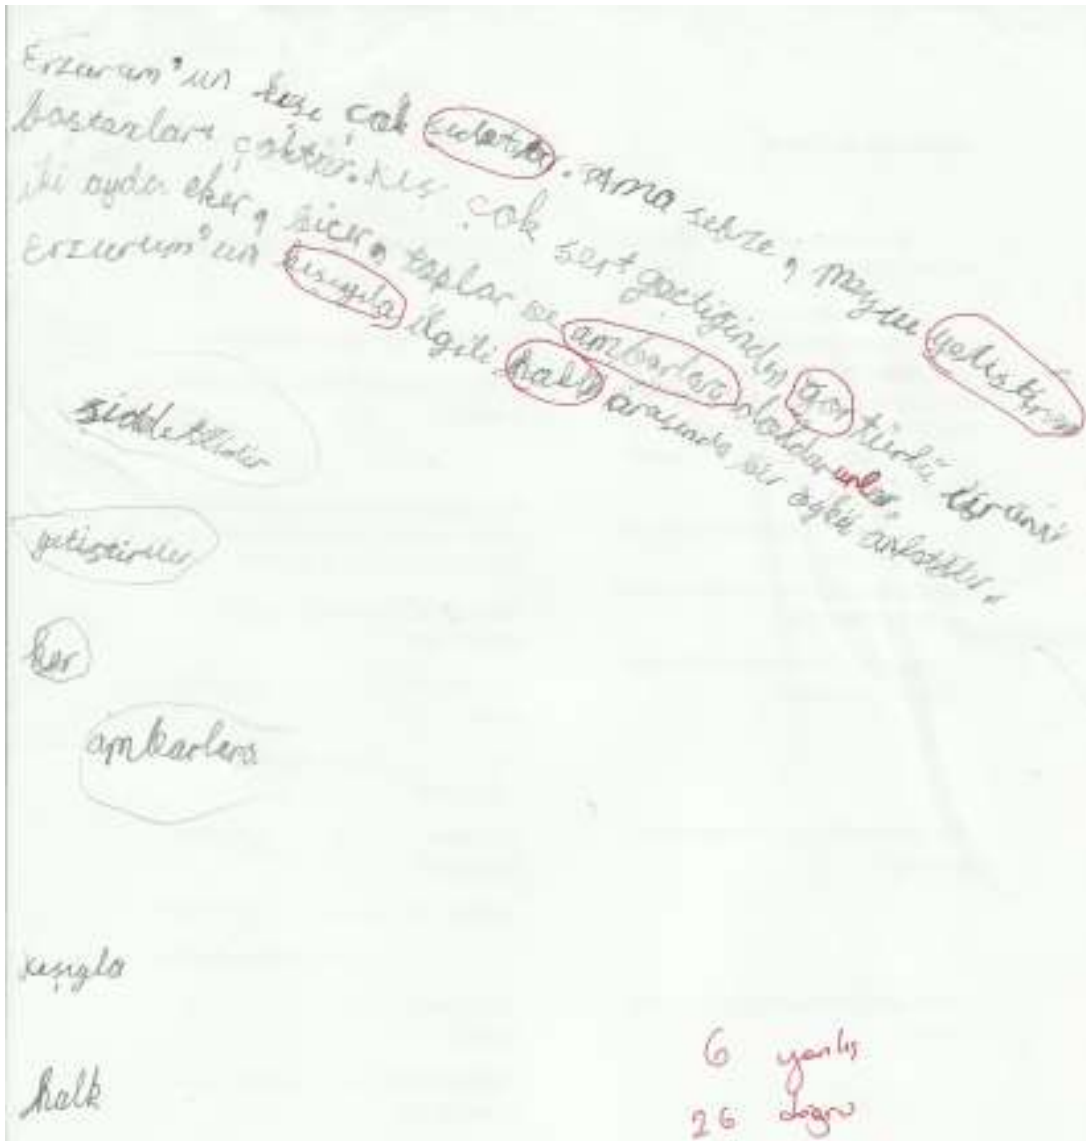 Erzurum'un kışı çok. Ama sebze, meyve
bostanları çoktur. Kış çok sert geçtiğinden türlü ürünü
iki ayda eker, biçer, toplar ve ambarlara
Erzurum'un kışıyla ilgili halk arasında bir öykü anlatılır.
şiddetlidir
yetiştirirler
her
ambarlara
kışıyla
halk
6 yanlış
26 doğru